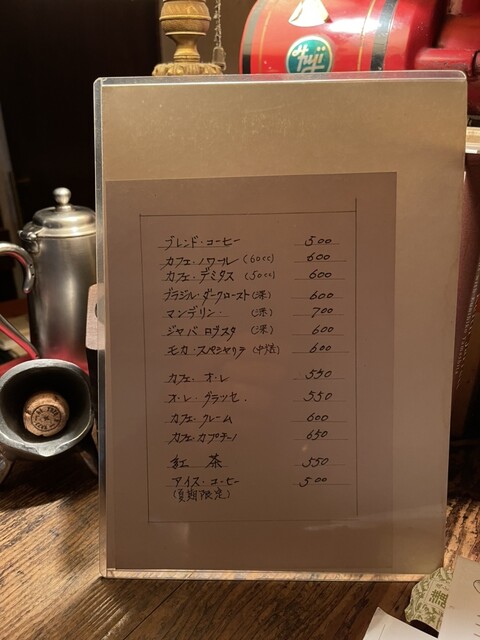 Fuji
ブレンド・コーヒー 500
カフェ・ノワール (60cc) 600
カフェ・デミタス (50cc) 600
ブラジル・ダークロースト (深) 600
マンデリン・ (深) 700
ジャバ ロブスタ (深) 600
モカ・スペシャリテ (中深) 600
カフェ・オ・レ 550
オ・レ・グラッセ. 550
カフェ・クレーム 600
カフェ・カプチーノ 650
紅茶 550
アイス・コーヒー 500
(夏期限定)